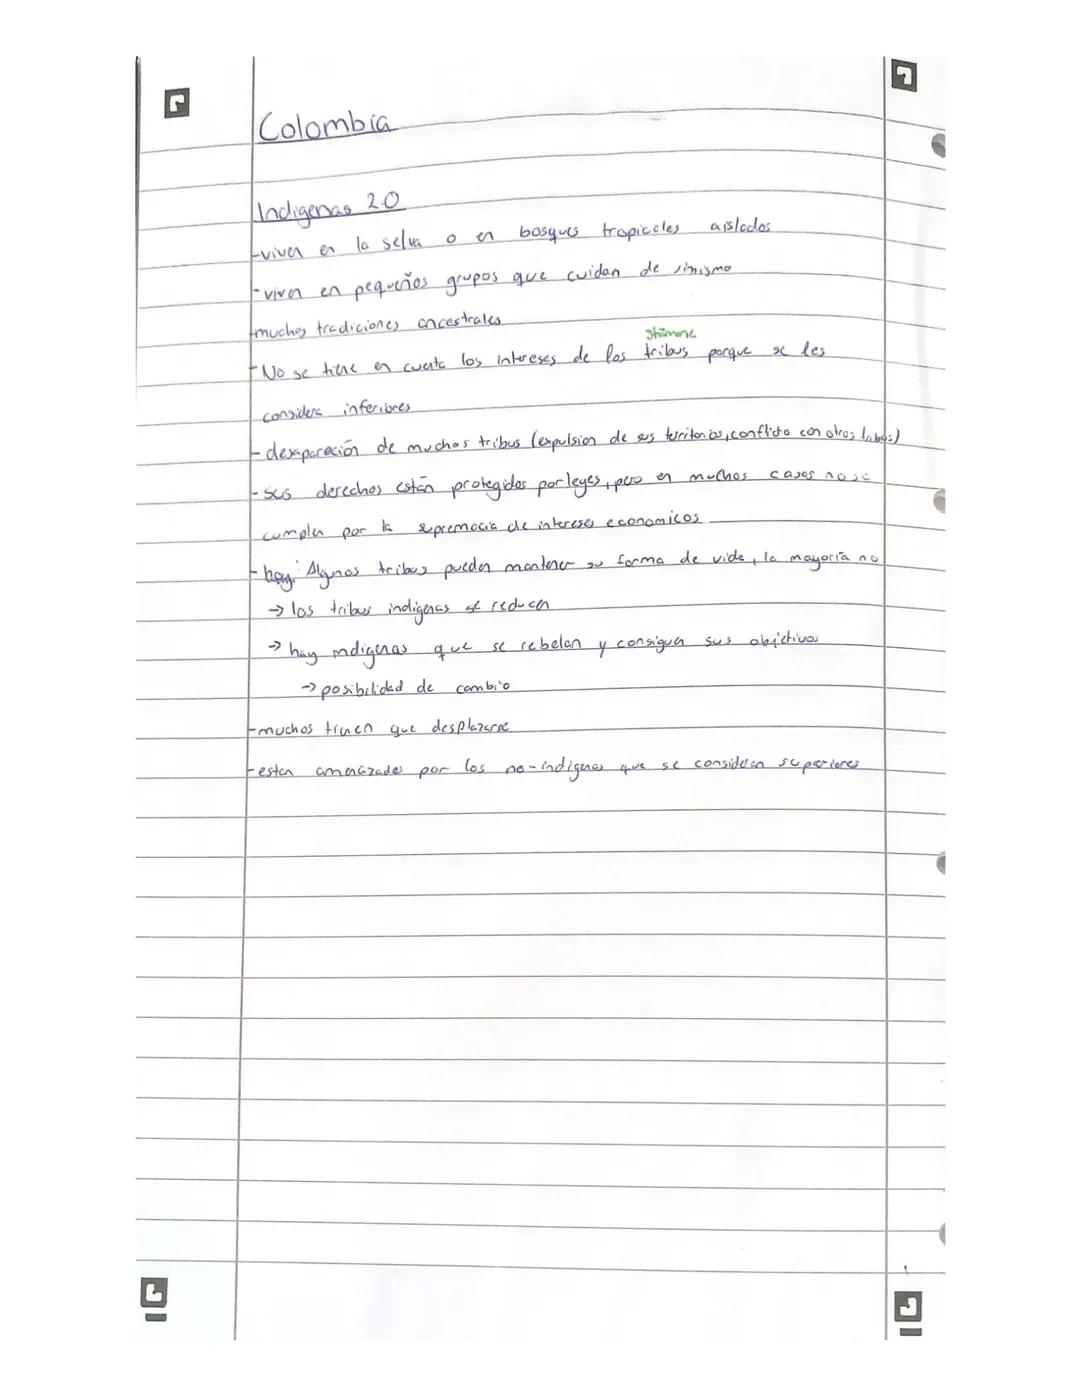 Colombia
Indigenas 2.0
-viven en la selva o en bosques tropicales aislados
-viven en pequeños grupos que cuidan de simismo
-muchas tradiciones ancestrales
Stämme
-No se tiene en cuenta los intereses de las tribus porque se les
considera inferiores
-desaparación de muchos tribus (expulsion de sus territorios, conflicto con otros
-sus derechos están protegidos por leyes, pero en muchos casos no se
cumplen por la supremacia de intereses economicos
-hoy: Algunos tribus pueden mantener su forma de vida, la mayoría no
→ los tribus indigenas se reducen
→ hay indigenas que se rebelan y consiguen sus objetivos
→ posibilidad de cambio
-muchos tienen que desplazarse
-estan amenazados por los no-indigenas que se consideran superiores